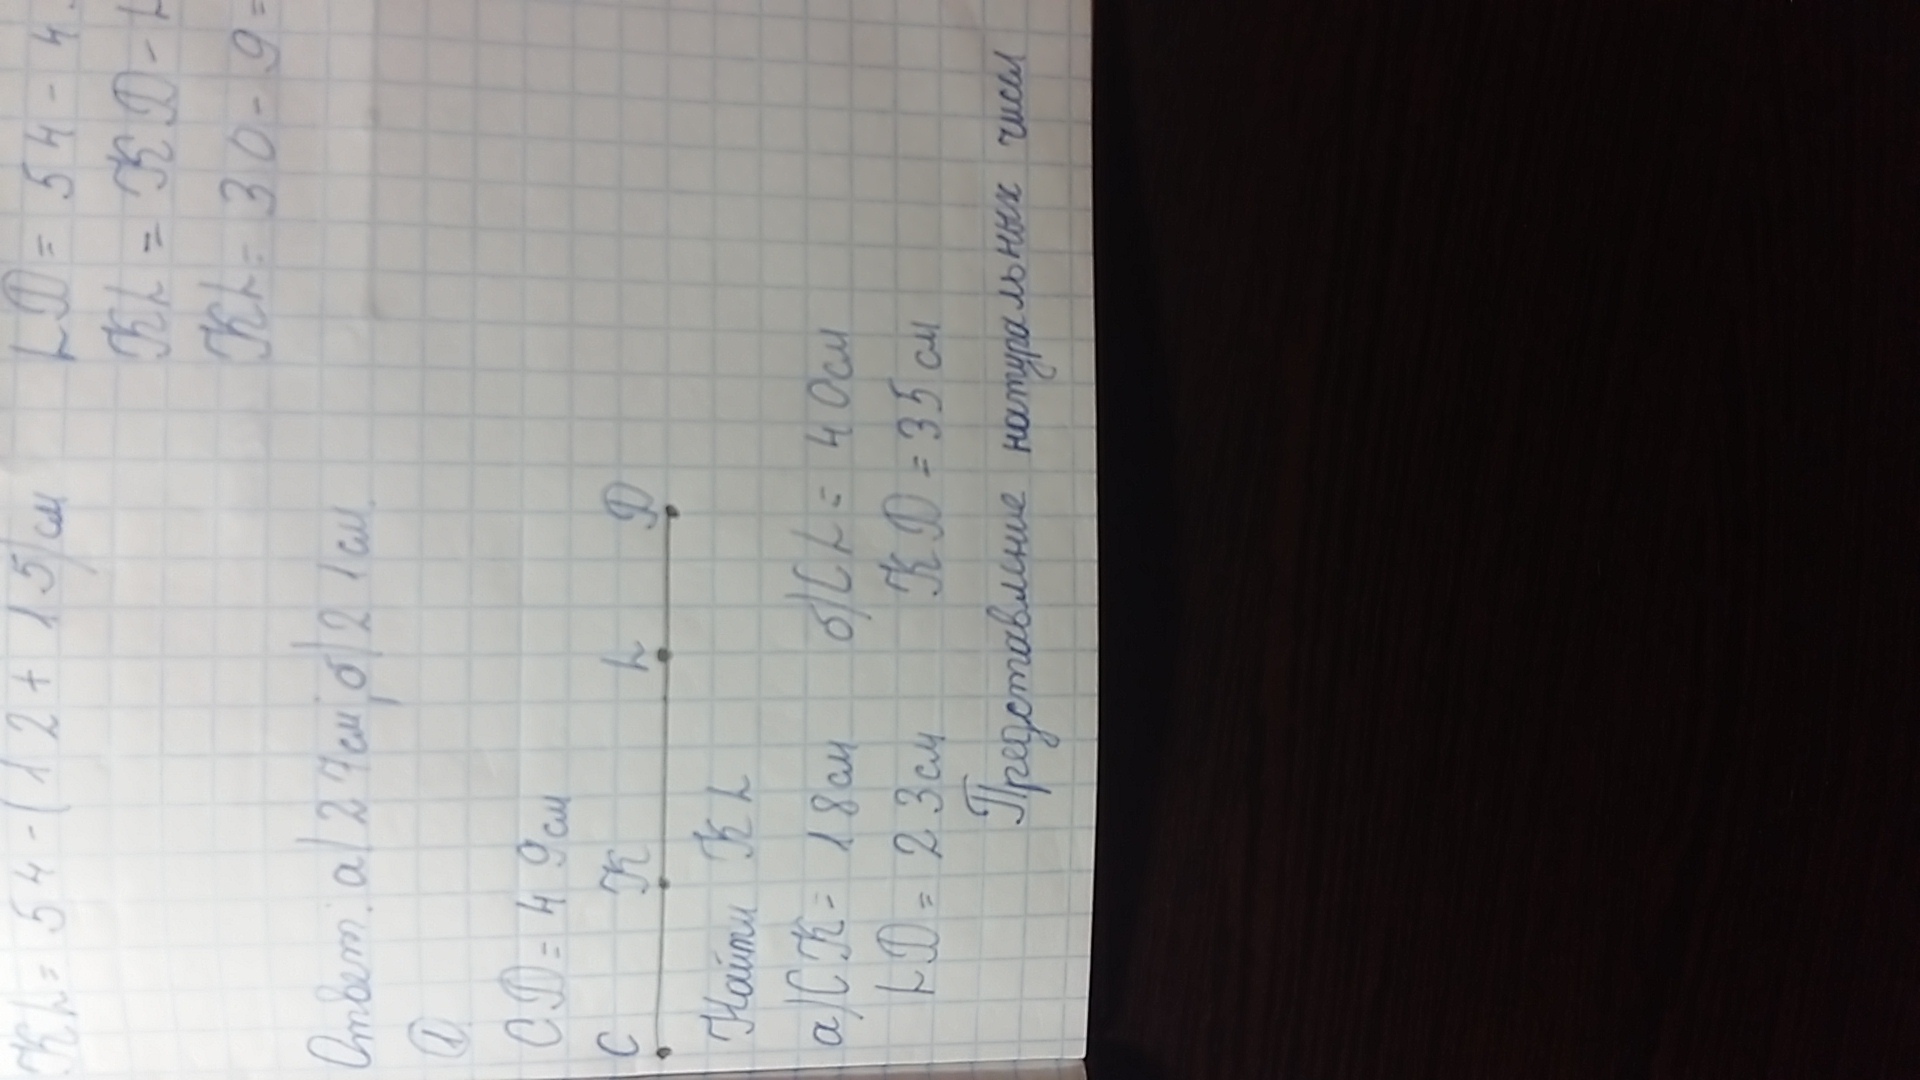 KL = 54 - (12 + 15) см
LD = 54 - 4
KL = KD - L
KL = 30 - 9 =
Ответ: а) 27 см б) 21 см
①
CD = 49 см
C K L D
Найти KL
а) CK = 18 см б) CL = 40 см
LD = 23 см KD = 35 см
Представление натуральных чисел